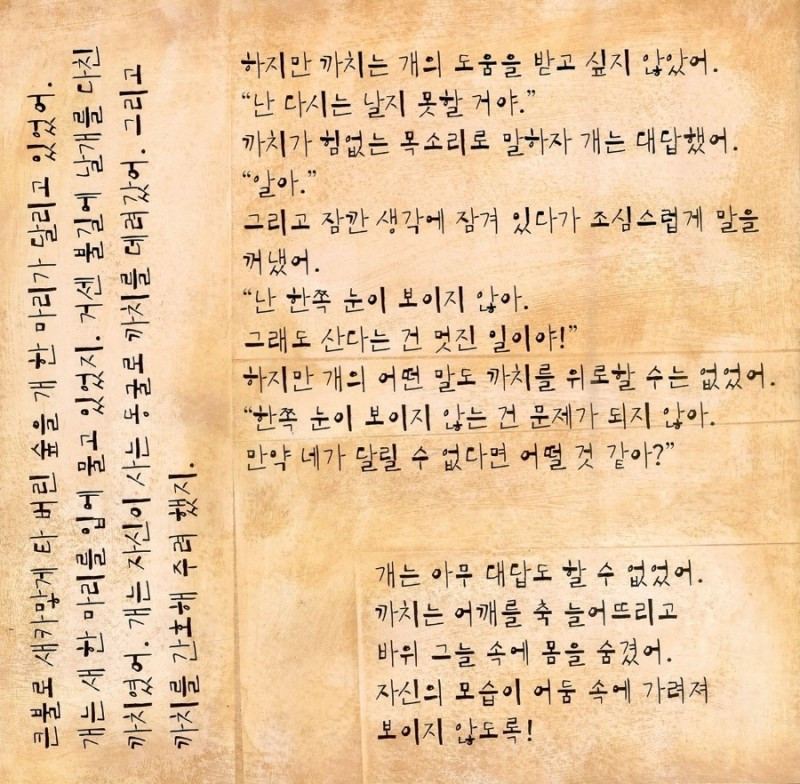 큰불로 새카맣게 타 버린 숲을 개 한 마리가 달리고 있었어.
개는 새 한 마리를 입에 물고 있었지. 거센 불길에 날개를 다친
까치였어. 개는 자신이 사는 동굴로 까치를 데려갔어. 그리고
까치를 간호해 주려 했지.
하지만 까치는 개의 도움을 받고 싶지 않았어.
“난 다시는 날지 못할 거야.”
까치가 힘없는 목소리로 말하자 개는 대답했어.
“알아.”
그리고 잠깐 생각에 잠겨 있다가 조심스럽게 말을
꺼냈어.
“난 한쪽 눈이 보이지 않아.
그래도 산다는 건 멋진 일이야!”
하지만 개의 어떤 말도 까치를 위로할 수는 없었어.
“한쪽 눈이 보이지 않는 건 문제가 되지 않아.
만약 네가 달릴 수 없다면 어떨 것 같아?”
개는 아무 대답도 할 수 없었어.
까치는 어깨를 축 늘어뜨리고
바위 그늘 속에 몸을 숨겼어.
자신의 모습이 어둠 속에 가려져
보이지 않도록!